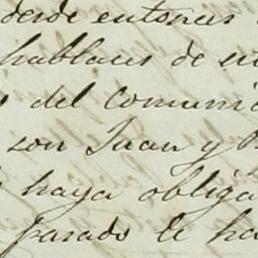 desde entonces
hablaus de
del comuni
son Juan y
haya obliga
pasado le ha